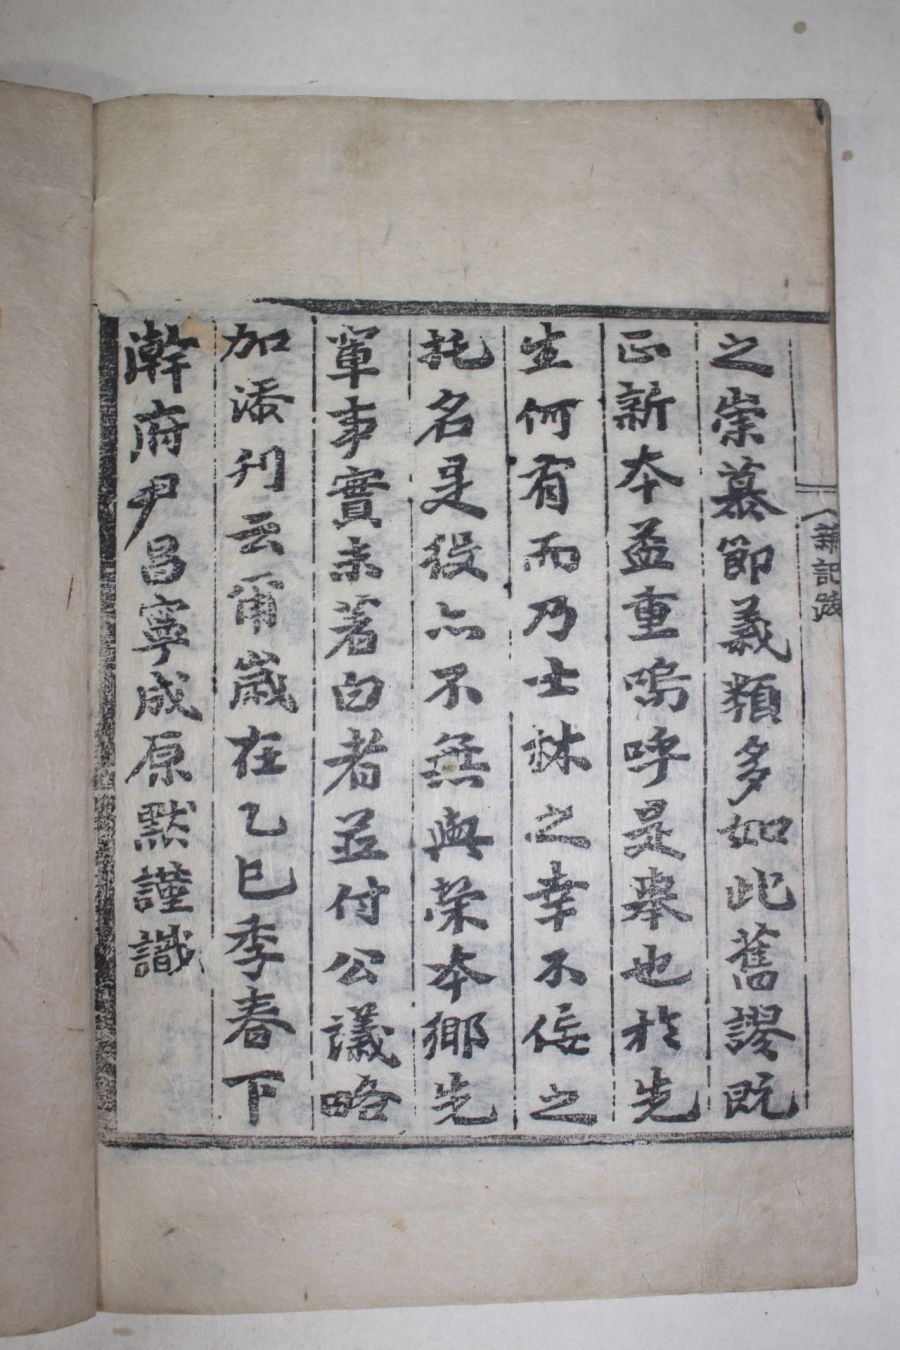 之崇慕節義類多如此舊謬旣
正新本益重嗚呼是擧也於先
生何有而乃士林之幸不佞之
托名是役亦不無與榮本鄕先
軰事實未著白者並付公議略
加添刋云爾歲在乙巳季春下
澣府尹昌寧成原默謹識
記跋